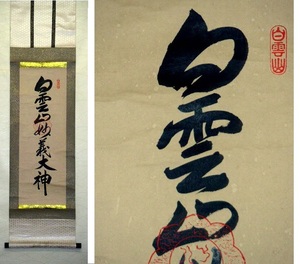 白雲山妙義大神
白雲山
白雲山